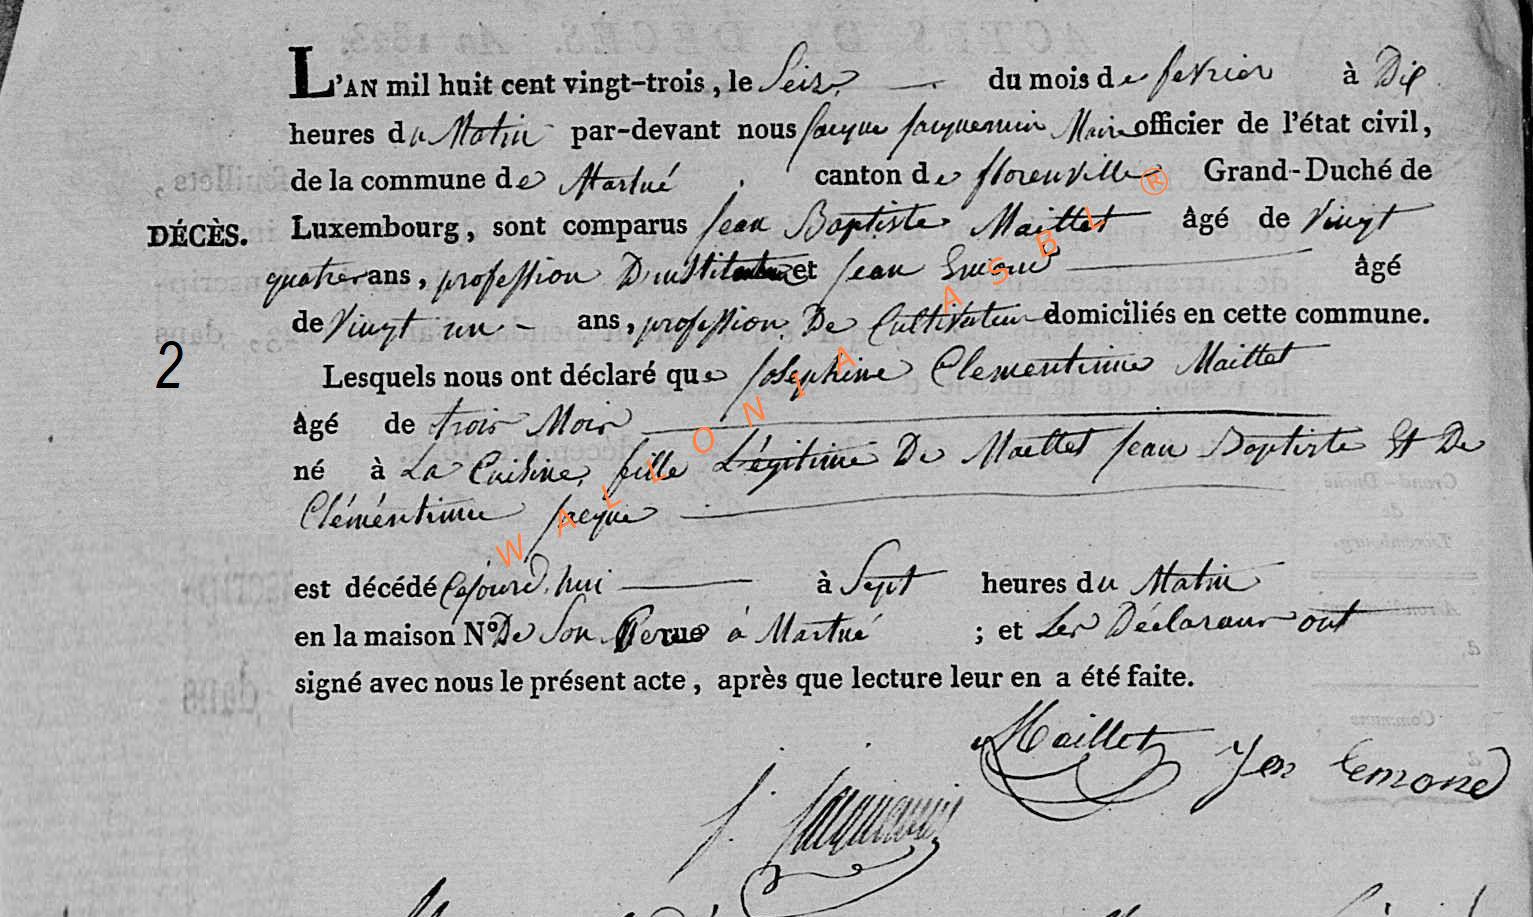 L'AN mil huit cent vingt-trois, le Seize du mois de fevrier à Dix
heures du Matin par-devant nous Jacque Jacquemin Maire officier de l'état civil,
de la commune de Martué canton de florenville Grand-Duché de
DÉCÈS. Luxembourg, sont comparus Jean Baptiste Maillet âgé de Vingt
quatre ans, profession D'instituteur et Jean âgé
de Vingt un ans, profession De Cultivateur domiciliés en cette commune.
2
Lesquels nous ont déclaré que Josephine Clementinne Maillet
âgé de trois Mois
né à La Cuisine, fille Légitime De Maillet Jean Baptiste Et De
Cléméntinne Jacque
est décédé Cejourd'hui à Sept heures du Matin
en la maison N° De Son à Martué ; et Les Déclarans ont
signé avec nous le présent acte, après que lecture leur en a été faite.
Maillet Jen Lemond
J. Jacquemin
WALLONIA ASBL ®